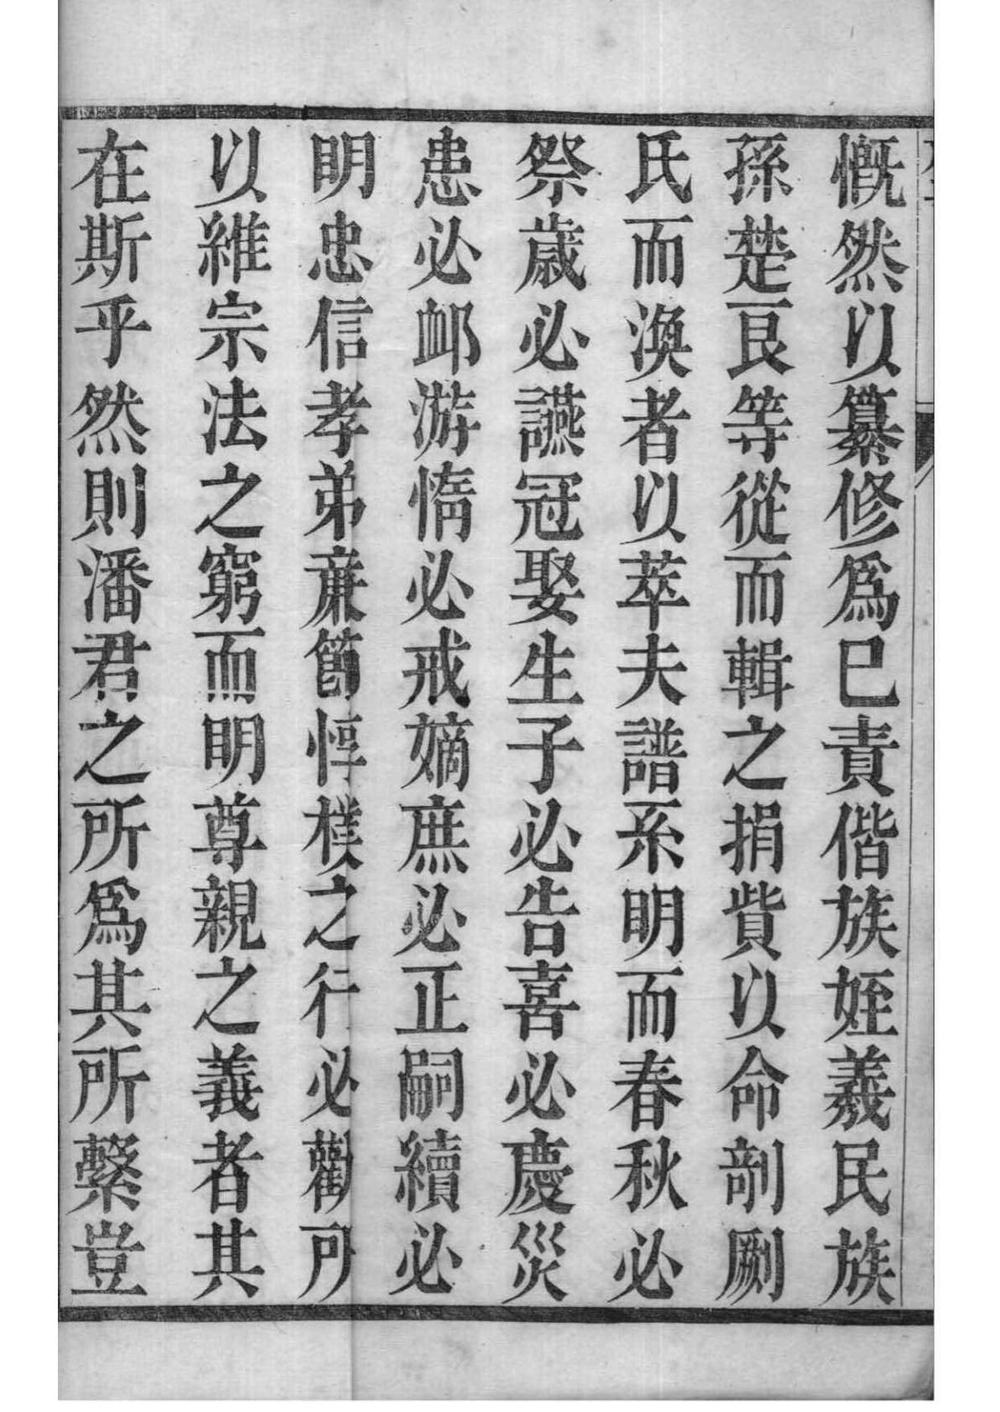 慨然以纂修爲己責偕族姪羲民族
孫楚艮等從而輯之捐貲以命剞劂
氏而渙者以萃夫譜系明而春秋必
祭歲必讌冠娶生子必告喜必慶災
患必䘏游惰必戒嫡庶必正嗣續必
明忠信孝弟亷節惇樸之行必勸所
以維宗法之窮而明尊親之義者其
在斯乎然則潘君之所爲其所繫豈